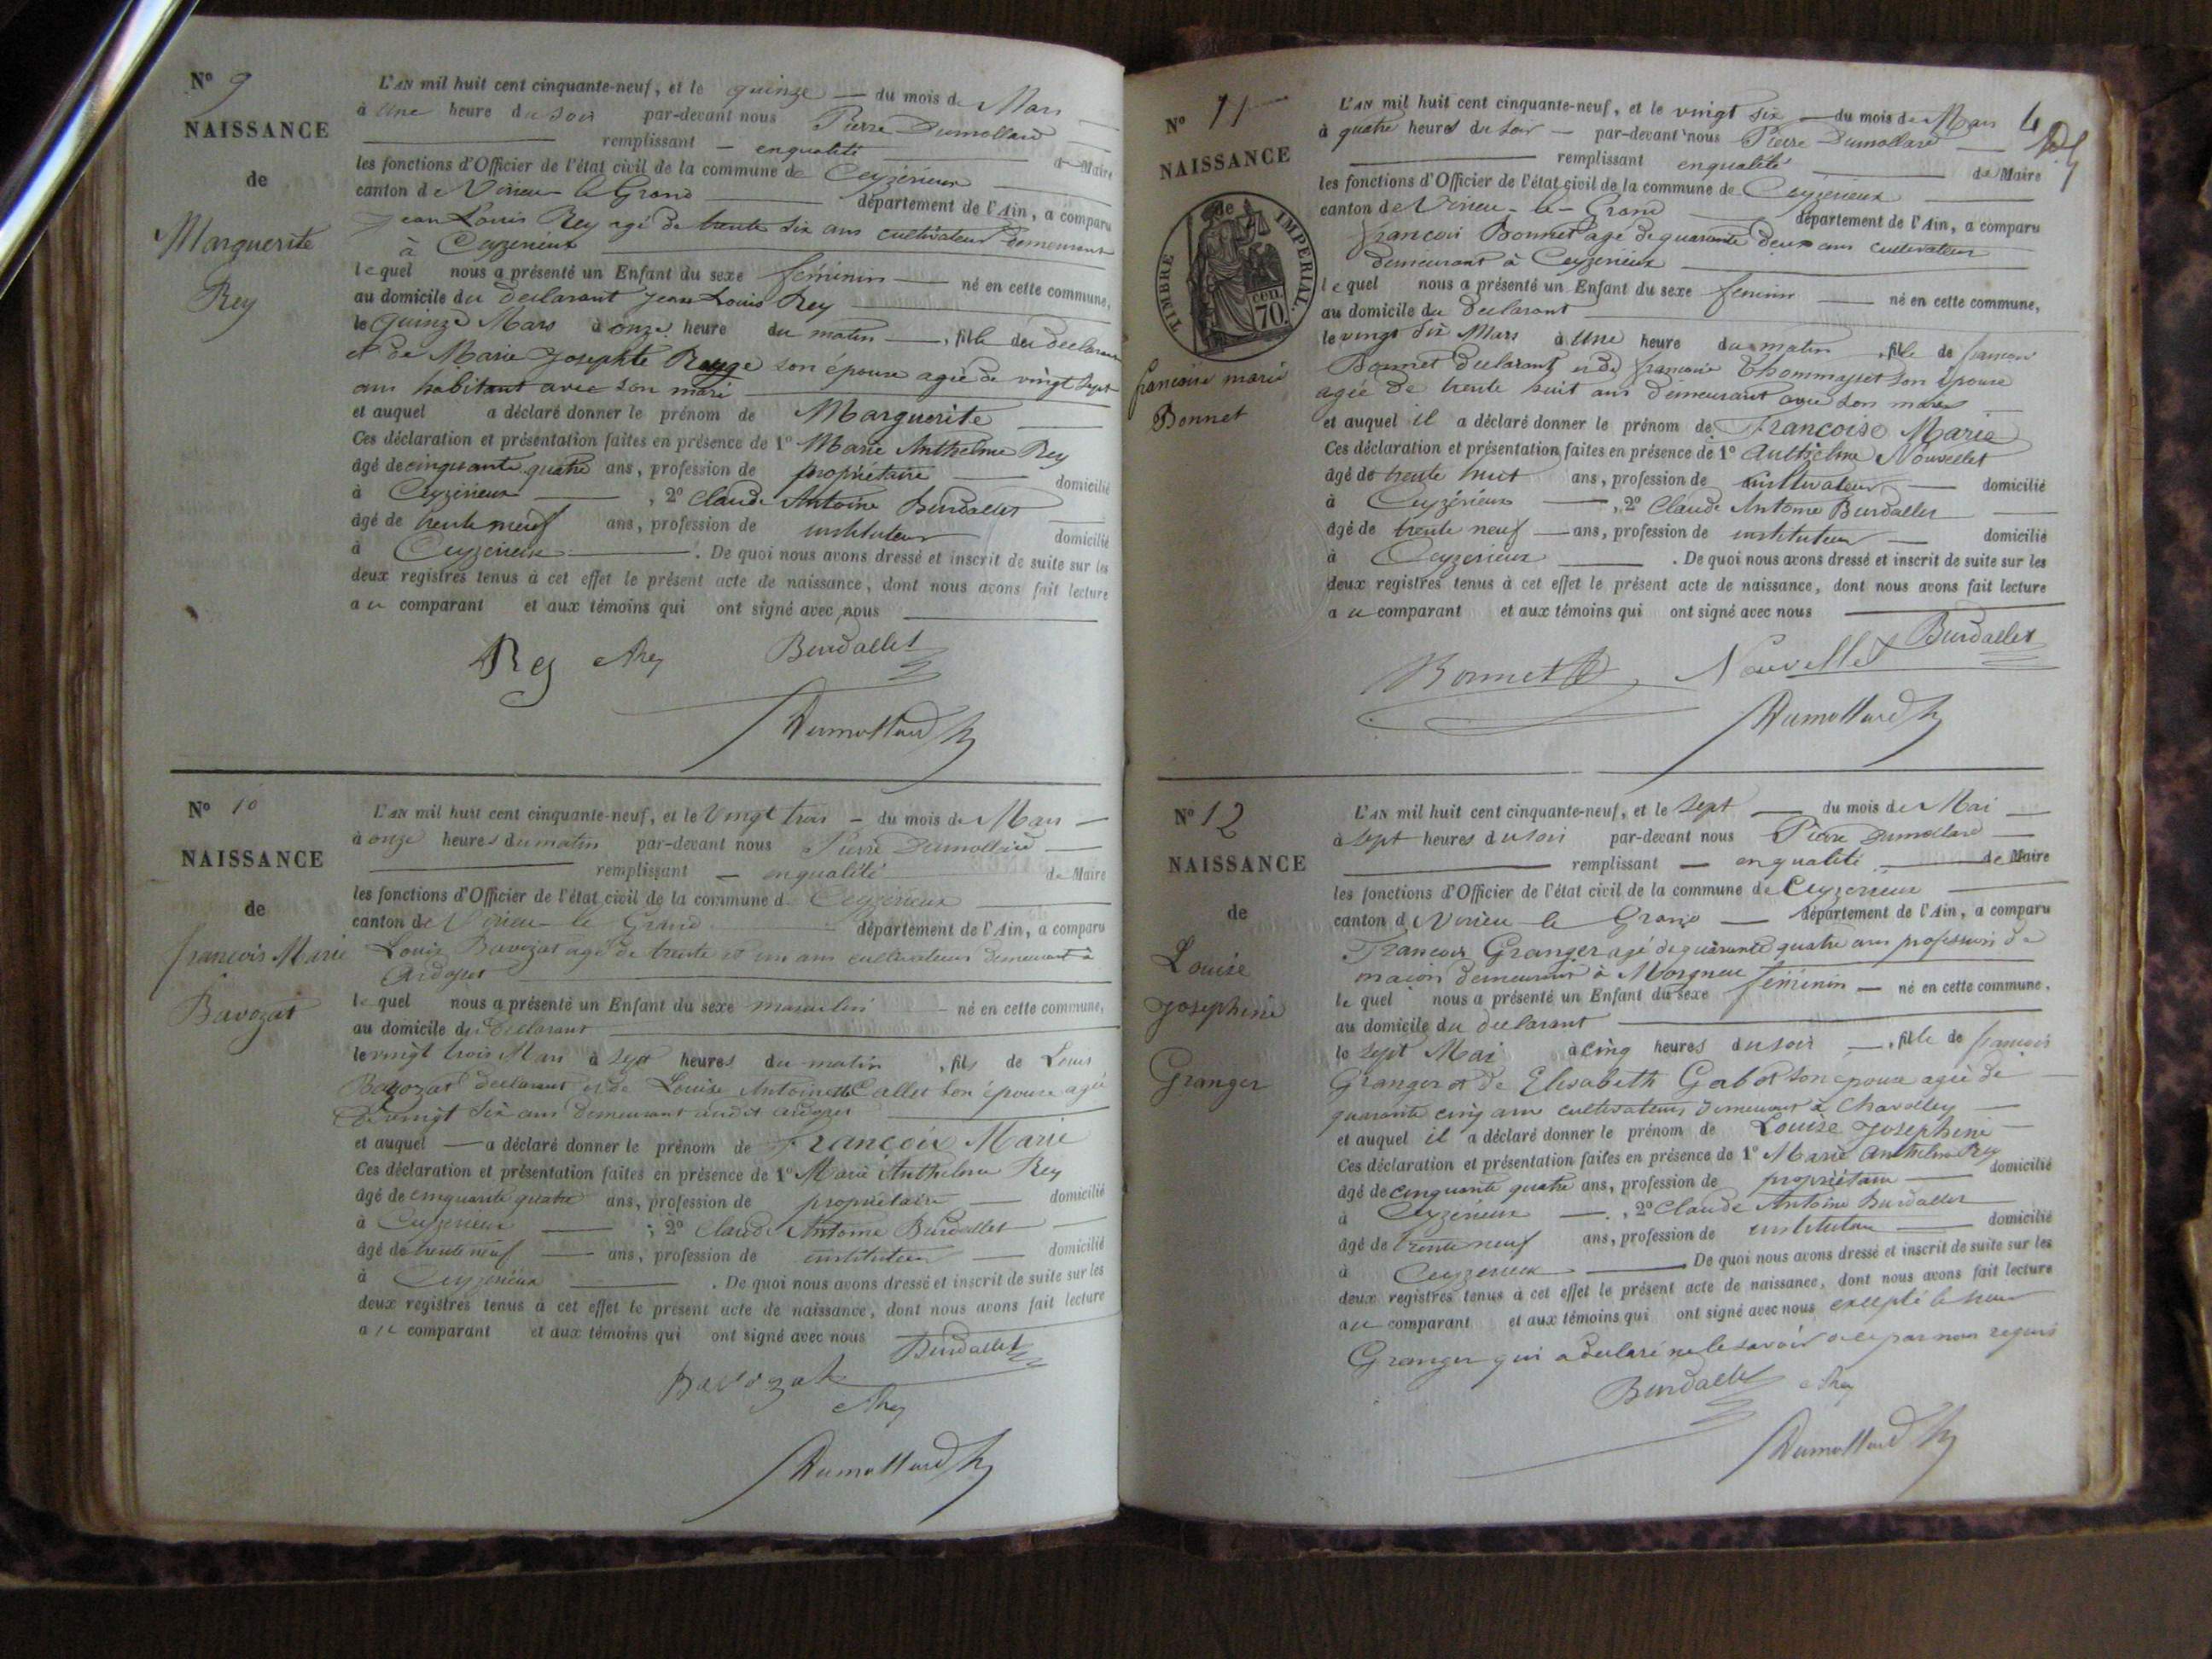 N° 9
NAISSANCE
de
Marguerite
Rey
L'AN mil huit cent cinquante-neuf, et le quinze — du mois de Mars
à une heure du soir par-devant nous Pierre Dumollard
remplissant — en qualité de Maire
les fonctions d'Officier de l'état civil de la commune de Ceyzerieux
canton de Virieu le Grand département de l'Ain, a comparu
Jean Louis Rey agé de trente six ans cultivateur demeurant
à Ceyzerieux
lequel nous a présenté un Enfant du sexe féminin — né en cette commune,
au domicile du declarant Jean Louis Rey
le quinze Mars à onze heure du matin —, fille du declarant
et de Marie Josephte Rouge son épouse agée de vingt sept
ans habitant avec son mari
et auquel a déclaré donner le prénom de Marguerite
Ces déclaration et présentation faites en présence de 1° Marie Anthelme Rey
âgé de cinquante quatre ans, profession de propriétaire domicilié
à Ceyzerieux, 2° Claude Antoine Burdallet
âgé de trente neuf ans, profession de instituteur domicilié
à Ceyzerieux. De quoi nous avons dressé et inscrit de suite sur les
deux registres tenus à cet effet le présent acte de naissance, dont nous avons fait lecture
au comparant et aux témoins qui ont signé avec nous
Rey Rey Burdallet
Dumollard
N° 10
NAISSANCE
de
francois Marie
Bavozat
L'AN mil huit cent cinquante-neuf, et le Vingt trois — du mois de Mars —
à onze heures du matin par-devant nous Pierre Dumollard
remplissant — en qualité de Maire
les fonctions d'Officier de l'état civil de la commune d Ceyzerieux
canton de Virieu le Grand département de l'Ain, a comparu
Louis Bavozat agé de trente et un ans cultivateur demeurant à
Ardosset
lequel nous a présenté un Enfant du sexe masculin — né en cette commune,
au domicile du declarant
le vingt trois Mars à sept heures du matin, fils de Louis
Bavozat declarant et de Louise Antoinette Callet son épouse agée
de vingt six ans demeurant audit
et auquel — a déclaré donner le prénom de François Marie
Ces déclaration et présentation faites en présence de 1° Marie Anthelme Rey
âgé de cinquante quatre ans, profession de propriétaire — domicilié
à Ceyzerieux ; 2° Claude Antoine Burdallet
âgé de trente neuf — ans, profession de instituteur — domicilié
à Ceyzerieux. De quoi nous avons dressé et inscrit de suite sur les
deux registres tenus à cet effet le présent acte de naissance, dont nous avons fait lecture
au comparant et aux témoins qui ont signé avec nous Burdallet
Bavozat
Rey
Dumollard
N° 11
NAISSANCE
de
TIMBRE IMPERIAL
cen. 70
francoise marie
Bonnet
4
L'AN mil huit cent cinquante-neuf, et le vingt six — du mois de Mars
à quatre heures du soir — par-devant nous Pierre Dumollard
remplissant en qualité de Maire
les fonctions d'Officier de l'état civil de la commune de Ceyzerieux
canton de Virieu-le-Grand département de l'Ain, a comparu
françois Bonnet agé de quarante deux ans cultivateur
demeurant à Ceyzerieux
lequel nous a présenté un Enfant du sexe feminin — né en cette commune,
au domicile du declarant
le vingt six Mars à une heure du matin, fille de francois
Bonnet declarant et de francoise Thommasset son épouse
agée de trente huit ans demeurant avec son mari
et auquel il a déclaré donner le prénom de Françoise Marie
Ces déclaration et présentation faites en présence de 1° Anthelme Nouvellet
âgé de trente huit ans, profession de cultivateur — domicilié
à Ceyzérieux —, 2° Claude Antoine Burdallet
âgé de trente neuf — ans, profession de instituteur — domicilié
à Ceyzerieux. De quoi nous avons dressé et inscrit de suite sur les
deux registres tenus à cet effet le présent acte de naissance, dont nous avons fait lecture
au comparant et aux témoins qui ont signé avec nous
Bonnet Nouvellet Burdallet
Dumollard
N° 12
NAISSANCE
de
Louise
Josephine
Granger
L'AN mil huit cent cinquante-neuf, et le Sept — du mois de Mai
à sept heures du soir par-devant nous Pierre Dumollard
remplissant — en qualité de Maire
les fonctions d'Officier de l'état civil de la commune de Ceyzerieux
canton d Virieu le Grand — département de l'Ain, a comparu
François Granger agé de quarante quatre ans profession de
maçon demeurant à Morgneu
lequel nous a présenté un Enfant du sexe féminin — né en cette commune,
au domicile du declarant
le sept Mai à cinq heures du soir —, fille de francois
Granger et de Elisabeth Gabot son épouse agée de
quarante cinq ans cultivateurs demeurant à
et auquel il a déclaré donner le prénom de Louise Josephine
Ces déclaration et présentation faites en présence de 1° Marie Anthelme Rey
âgé de cinquante quatre ans, profession de propriétaire domicilié
à Ceyzérieux —, 2° Claude Antoine Burdallet
âgé de trente neuf ans, profession de instituteur domicilié
à Ceyzerieux. De quoi nous avons dressé et inscrit de suite sur les
deux registres tenus à cet effet le présent acte de naissance, dont nous avons fait lecture
au comparant et aux témoins qui ont signé avec nous excepté le sieur
Granger qui a declaré ne le savoir de ce par nous requis
Burdallet Rey
Dumollard